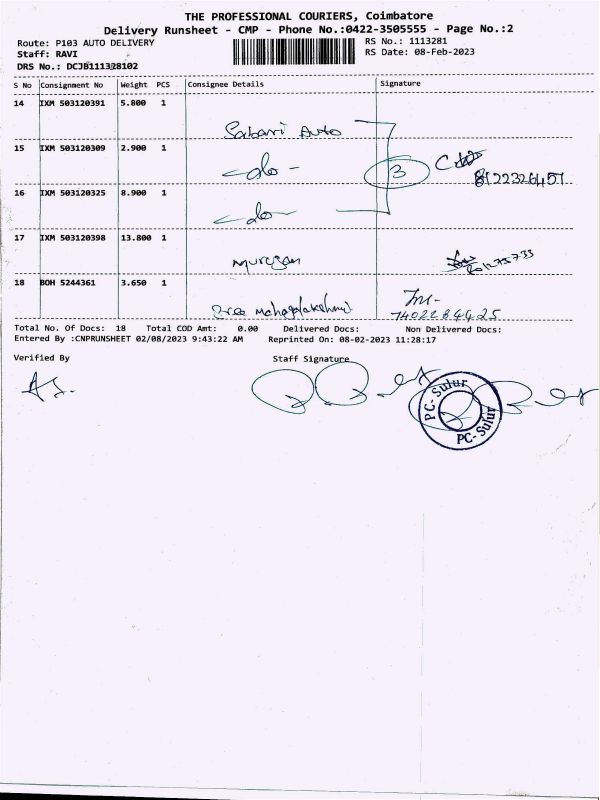 THE PROFESSIONAL COURIERS, Coimbatore
Delivery Runsheet - CMP - Phone No.:0422-3505555 - Page No.:2
Route: P103 AUTO DELIVERY
RS No.: 1113281
Staff: RAVI
RS Date: 08-Feb-2023
DRS No.: DCJB111328102
S No Consignment No Weight PCS Consignee Details Signature
14 IXM 503120391 5.800 1
Sabari Auto
15 IXM 503120309 2.900 1
-do-
3
8122326451
16 IXM 503120325 8.900 1
-do-
17 IXM 503120398 13.800 1
Murugan
18 BOH 5244361 3.650 1
Sree Mahagalakshmi
7402284425
Total No. Of Docs: 18 Total COD Amt: 0.00 Delivered Docs: Non Delivered Docs:
Entered By :CNPRUNSHEET 02/08/2023 9:43:22 AM Reprinted On: 08-02-2023 11:28:17
Verified By Staff Signature
PC-Sulur
PC-Sulur